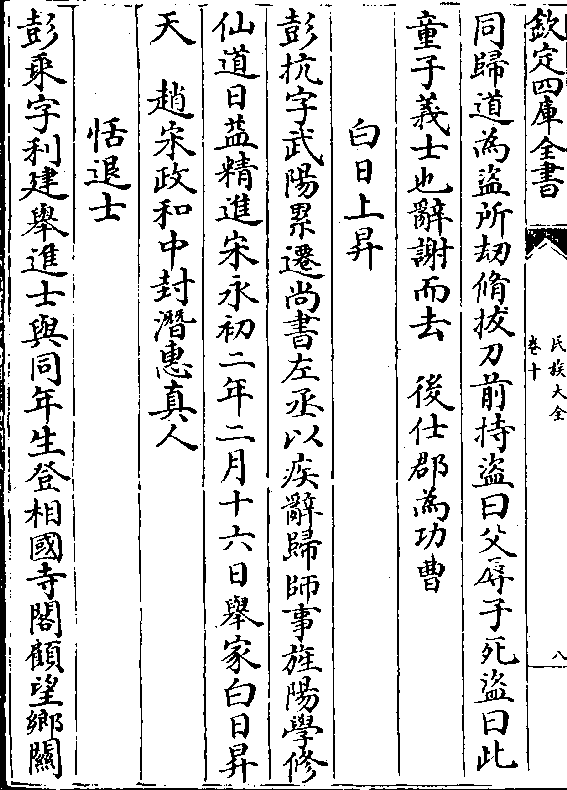 欽定四庫全書
氏族大全
卷十
八
同歸道為盜所劫脩拔刀前持盜曰父辱子死盜曰此
童子義士也辭謝而去　後仕郡為功曹
白日上昇
彭抗字武陽累遷尚書左丞以疾辭歸師事旌陽學修
仙道日益精進宋永初二年二月十六日舉家白日昇
天　趙宋政和中封潛惠真人
恬退士
彭乘字利建舉進士與同年生登相國寺閣顧望鄉關